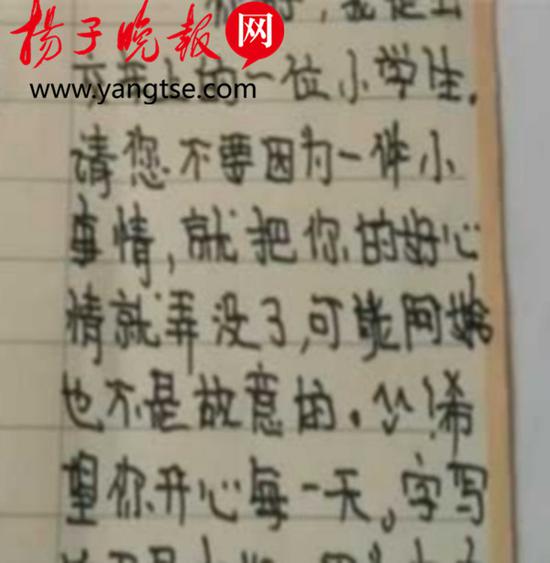 扬子晚报网
www.yangtse.com
的一位小学生.
请您不要因为一件小
事情,就把你的好心
情就弄没了,可能阿姨
也不是故意的。希
望你开心每一天。字写